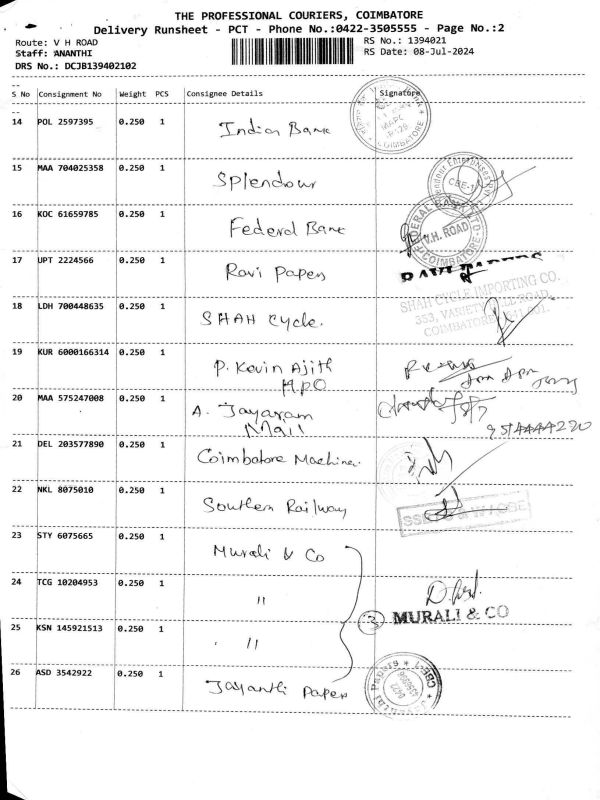 THE PROFESSIONAL COURIERS, COIMBATORE
Delivery Runsheet - PCT - Phone No.:0422-3505555 - Page No.:2
Route: V H ROAD RS No.: 1394021
Staff: ANANTHI RS Date: 08-Jul-2024
DRS No.: DCJB139402102
S No Consignment No Weight PCS Consignee Details Signature
14 POL 2597395 0.250 1 Indian Bank
COIMBATORE
15 MAA 704025358 0.250 1 Splendour
CBE-1
16 KOC 61659785 0.250 1 Federal Bank
FEDERAL BANK LTD
V.H. ROAD
COIMBATORE
17 UPT 2224566 0.250 1 Ravi Papers
18 LDH 700448635 0.250 1 SHAH Cycle.
SHAH CYCLE IMPORTING CO.
353, VARIETY HALL ROAD,
COIMBATORE
19 KUR 6000166314 0.250 1 P. Kevin Ajith
HPO
20 MAA 575247008 0.250 1 A. Jayaram
Mall
9514444220
21 DEL 203577890 0.250 1 Coimbatore Machines.
22 NKL 8075010 0.250 1 Southern Railway
23 STY 6075665 0.250 1 Murali & Co
24 TCG 10204953 0.250 1 "
3 MURALI & CO
25 KSN 145921513 0.250 1 "
26 ASD 3542922 0.250 1 Jayanthi Papers